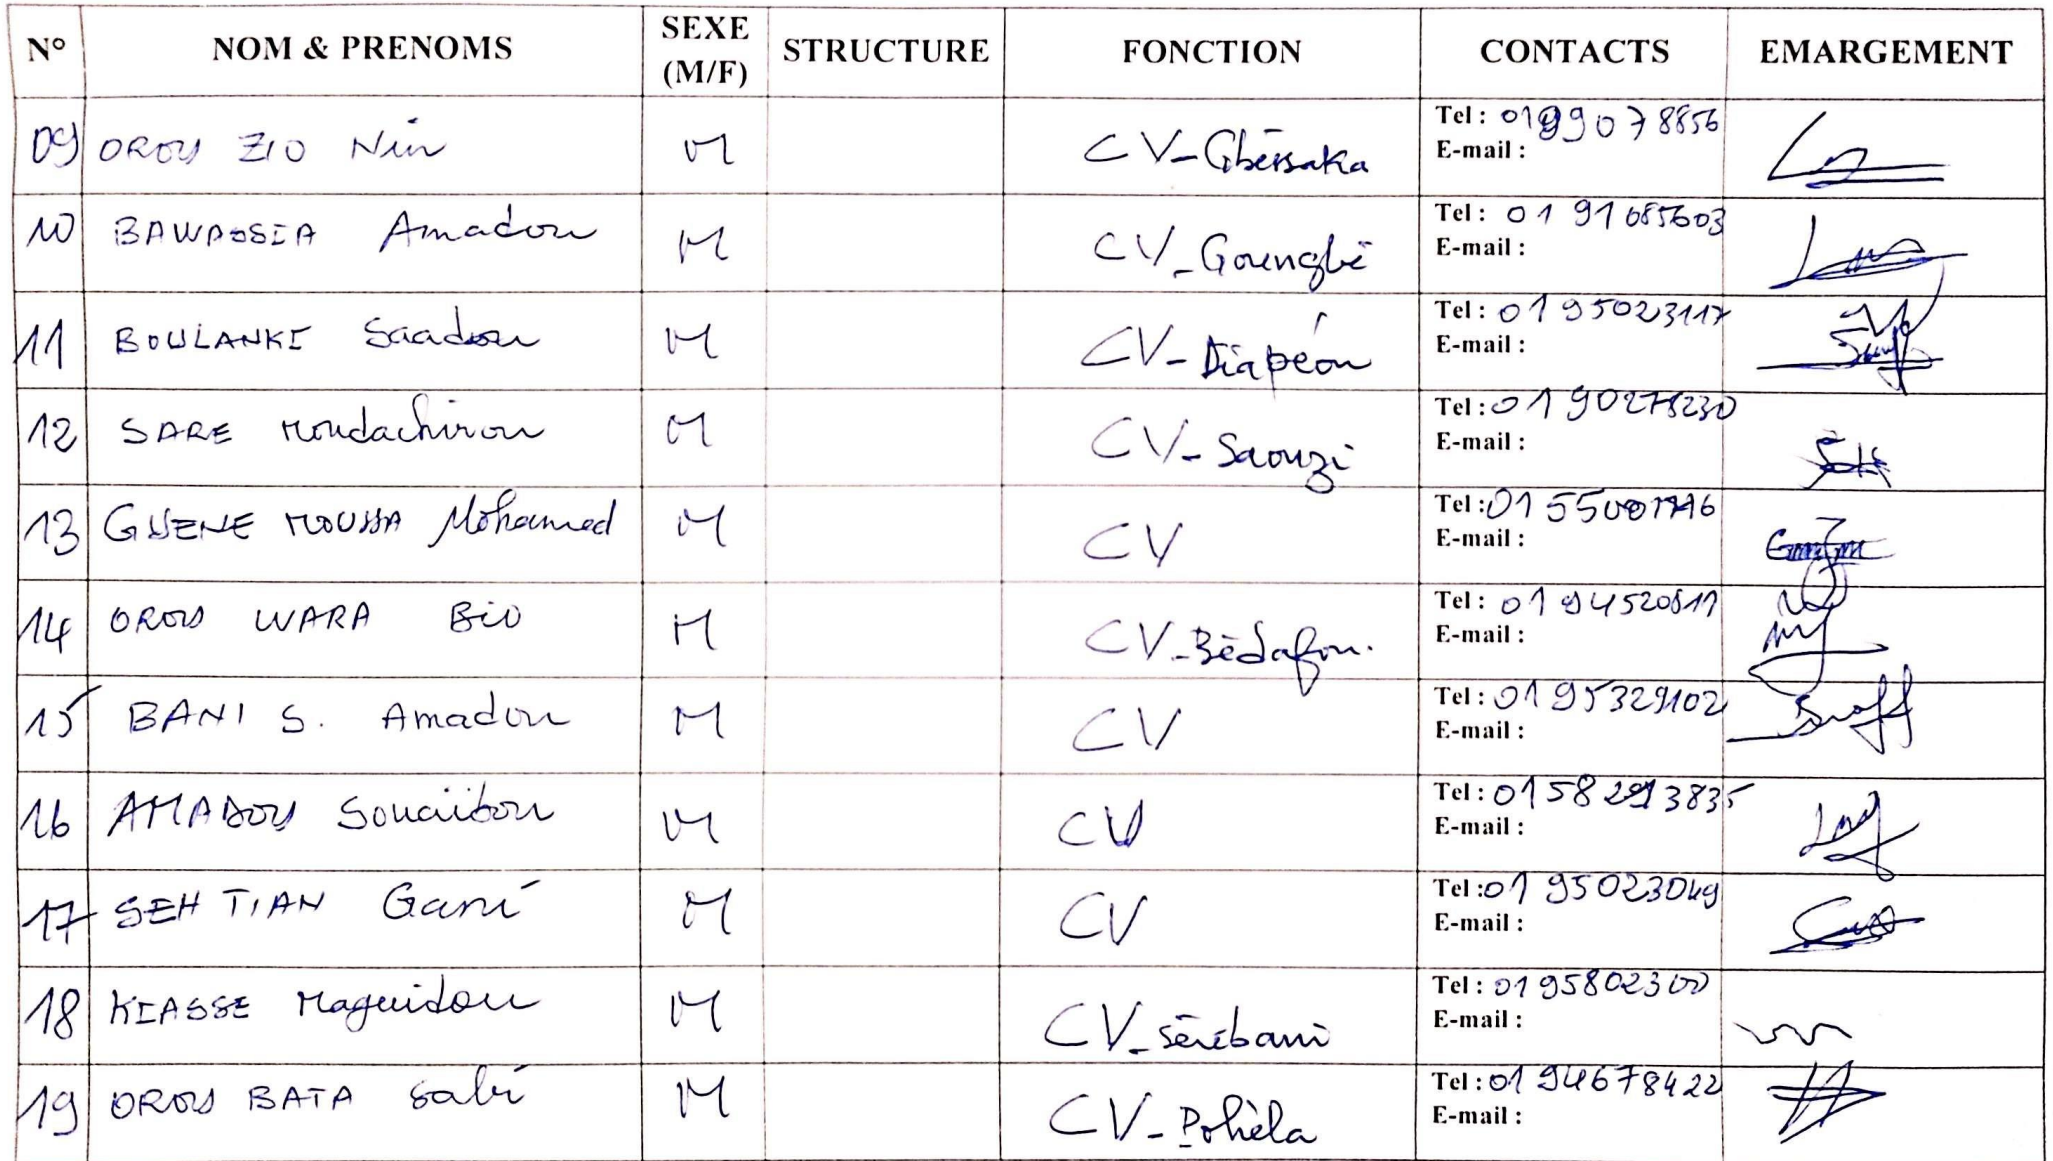 N° NOM & PRENOMS SEXE (M/F) STRUCTURE FONCTION CONTACTS EMARGEMENT
09 OROU ZIO Nin M CV-Gbérsaka Tel : 0199078856
E-mail :
10 BAWASSIA Amadou M CV-Goungbè Tel : 0191085603
E-mail :
11 BOULANKI Saadou M CV-Diapéou Tel : 0195023117
E-mail :
12 SARE Moudachirou M CV-Saouzi Tel : 0190278230
E-mail :
13 GUENE MOUSSA Mohamed M CV Tel : 01
E-mail :
14 OROU WARA Bio M CV-Bèdafou. Tel : 0194520811
E-mail :
15 BANI S. Amadou M CV Tel : 0195329102
E-mail :
16 AMADOU Souaïbou M CV Tel : 0158
E-mail :
17 SEH TIAN Gani M CV Tel : 0195023049
E-mail :
18 KIASSE Maguidou M CV-Sérébani Tel : 0195802300
E-mail :
19 OROU BATA Sabi M CV-Pohèla Tel : 0194678422
E-mail :